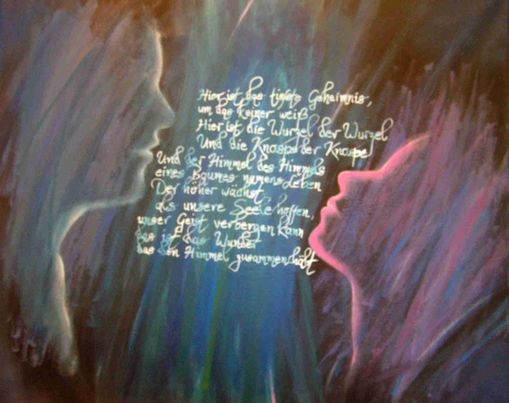 Hier ist das tiefste Geheimnis,
um das Keiner weiß
Hier ist die Wurzel der Wurzel
Und die Knospe der Knospe
Und der Himmel des Himmels
eines Baumes namens Leben
Der höher wächst,
als unsere Seele hoffen,
unser Geist verbergen kann
das ist das Wunder
das den Himmel zusammenhält